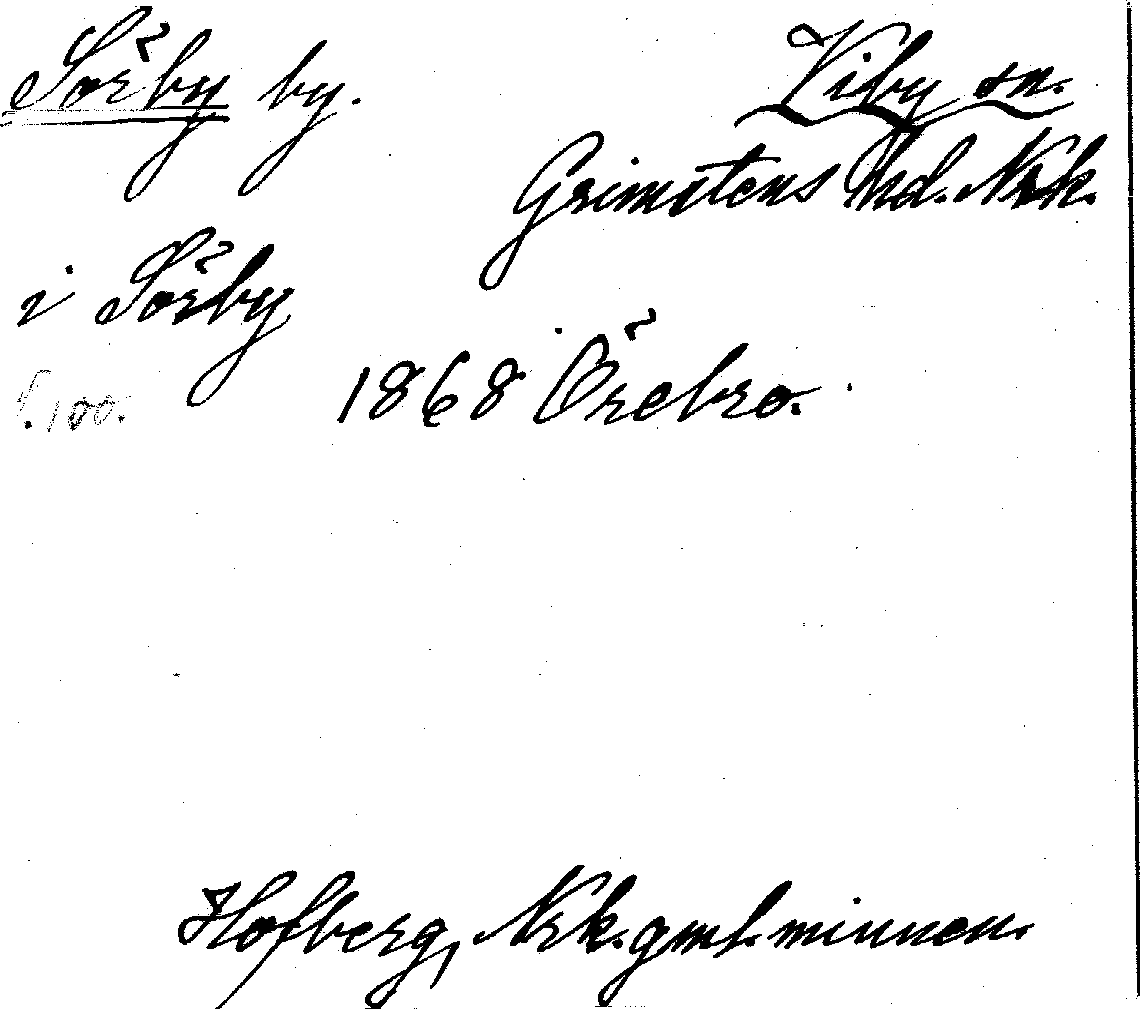 Sörby by.
Viby sn.
Grimstens hd. Nrk.
i Sörby
s. 100.
1868 Örebro.
Hofberg, Nrk. gml. minnen.